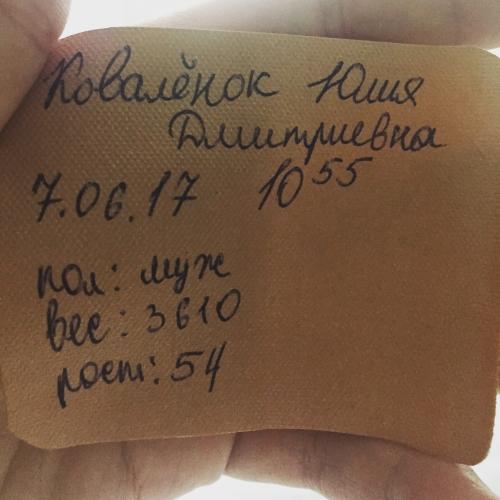 Ковалёнок Юлия
Дмитриевна
7.06.17 10⁵⁵
пол: муж
вес: 3610
рост: 54